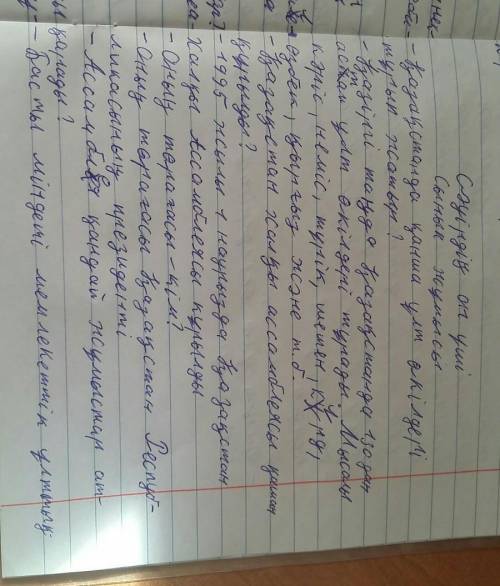 Сәуірдің он үші
Сынып жұмысы
- Қазақстанда қанша ұлт өкілдері
тұрып жатыр?
- Қазіргі таңда Қазақстанда 130дан
астам ұлт өкілдері тұрады. Мысалы
кәріс, неміс, түрік, шешен, күрд,
өзбек, қырғыз және т.б.
- Қазақстан халқы ассамблеясы қашан
құрылды?
- 1995 жылы 1 наурызда Қазақстан
Халқы Ассамблеясы құрылды
- Оның төрағасы - кім?
- Оның төрағасы Қазақстан Респуб-
ликасының президенті
- Ассамблея қандай жұмыстар ат-
қарады?
- Басты міндеті мемлекеттік ұлттық